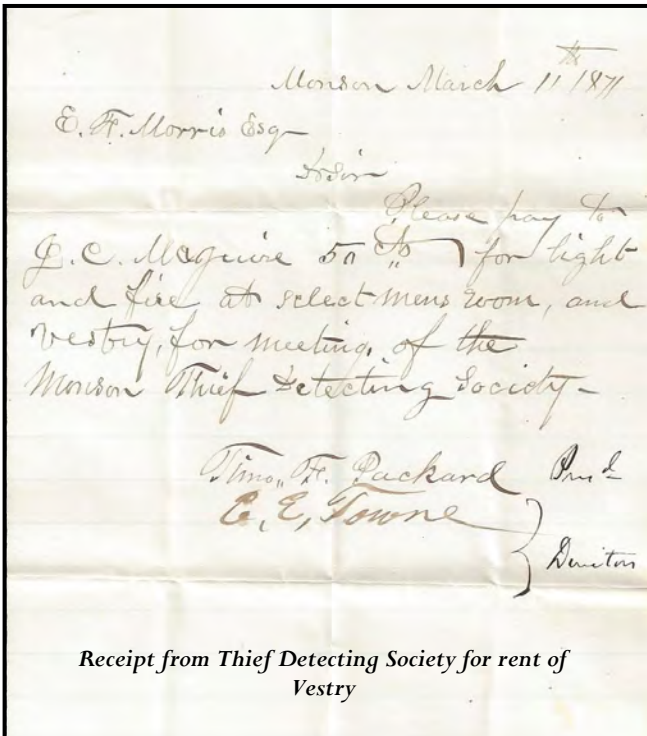 Monson March 11th 1871
E. F. Morris Esq
Please pay to
J. C. McGuire 50 cts for light
and fire at select mens room, and
Vestry, for meeting, of the
Monson Thief Detecting Society-
Timo,, F. Packard
C, E, Towne
Receipt from Thief Detecting Society for rent of
Vestry